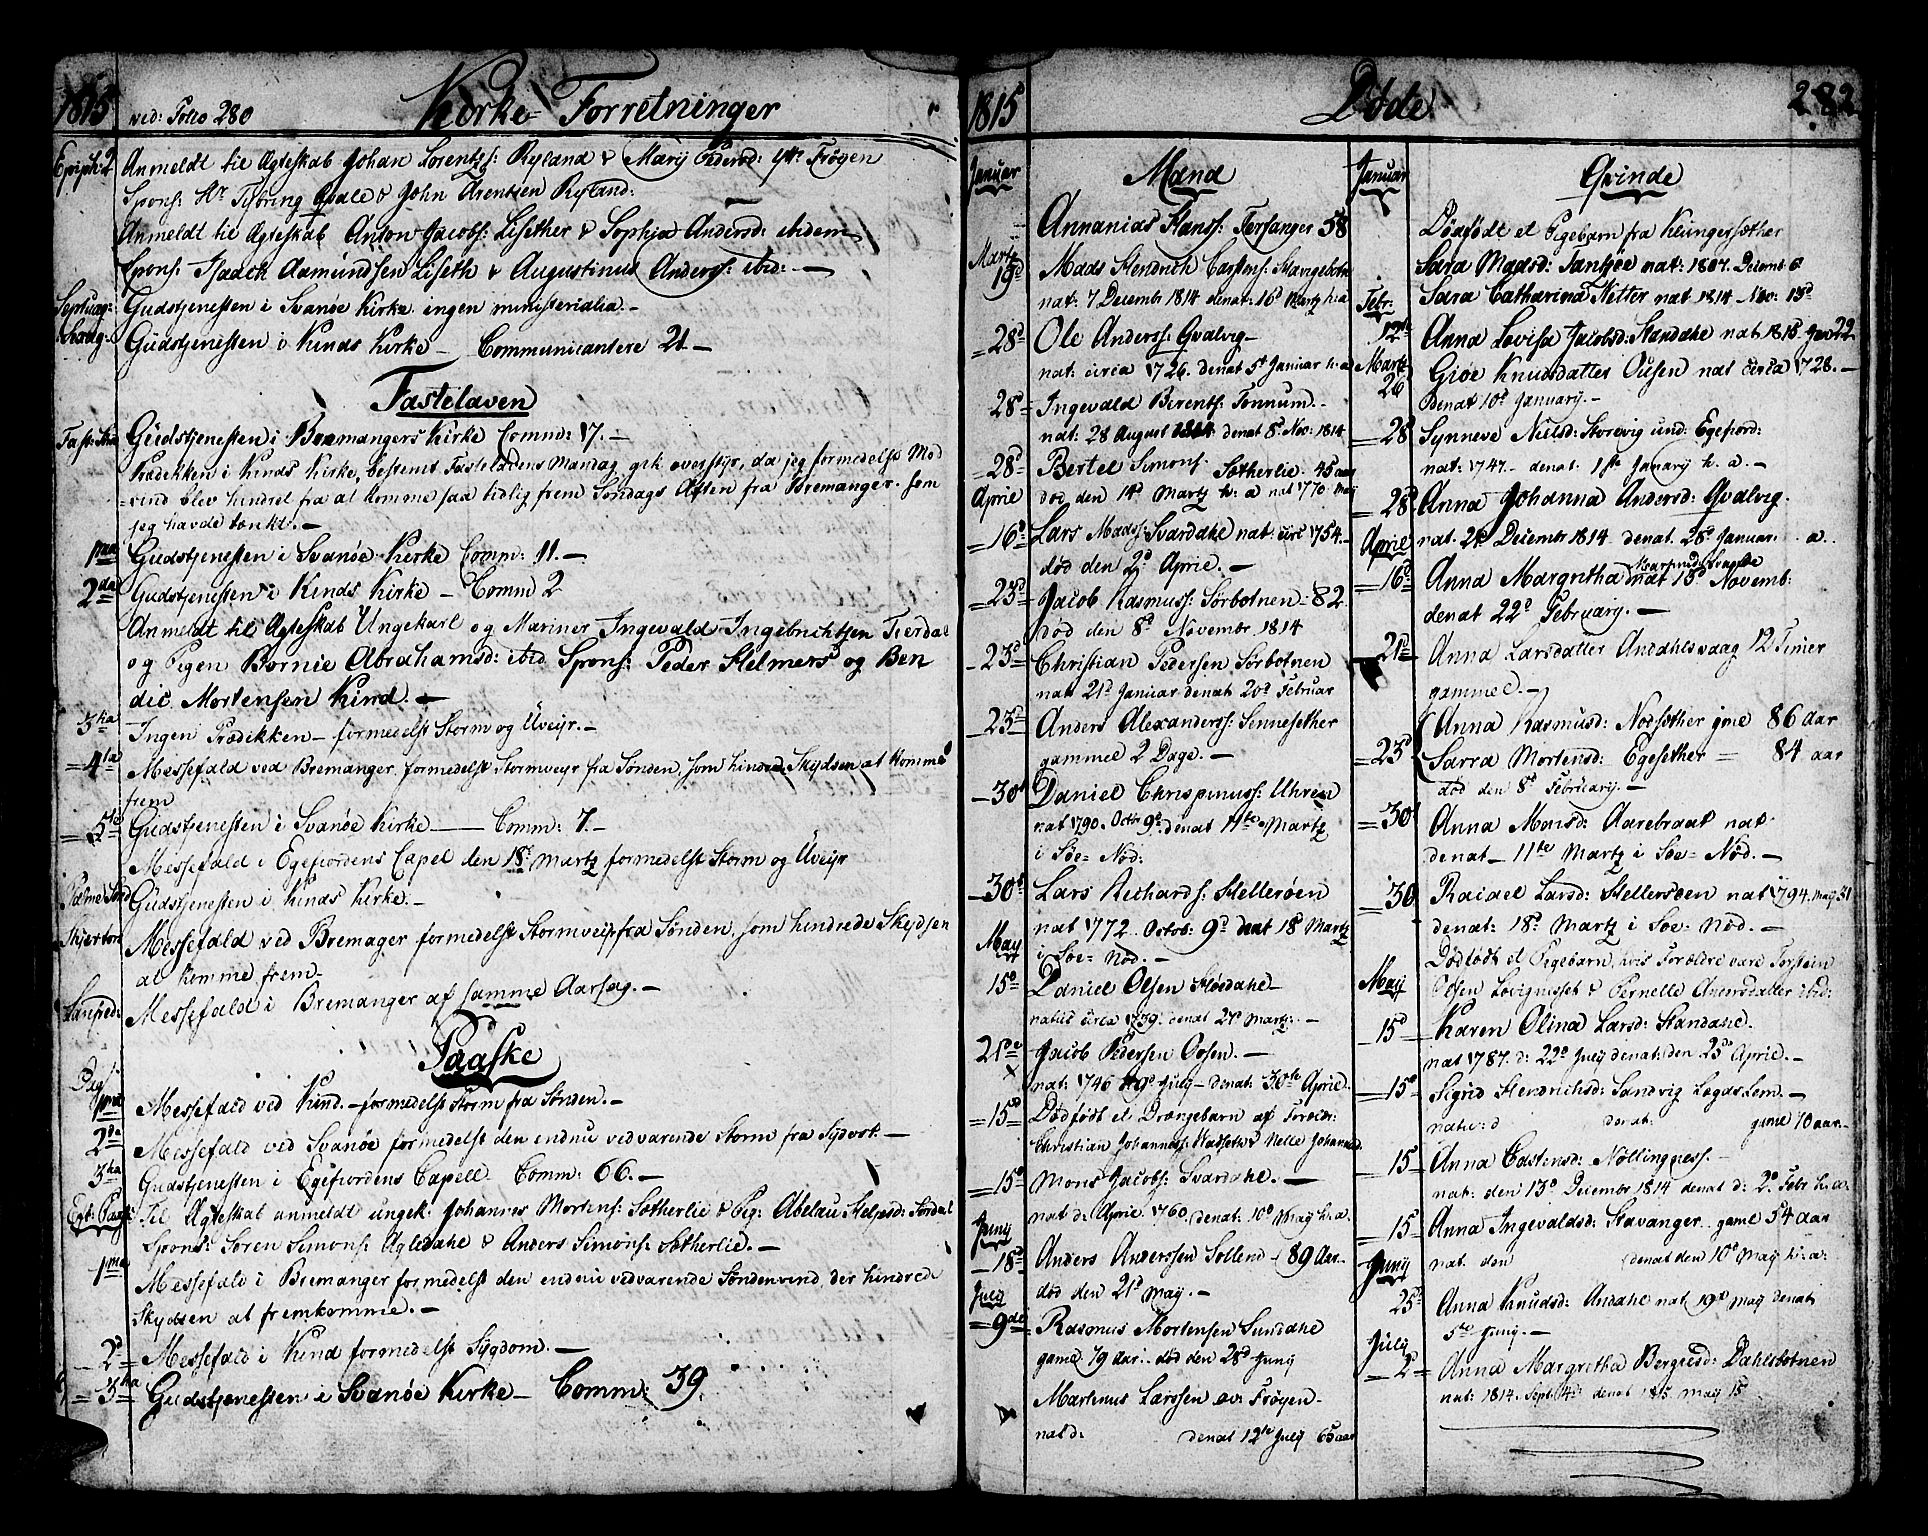 1815 vid: Folio 280 Kirke-Forretninger
Epiph: 2 Anmeldt til Ægteskab Johan Lorentzs: Ryland & Mary Pedersd: Frøyen
Spons: Hr Tyring Qvale & John Arentsen Ryland:
Anmeldt til Ægteskab Anton Jacobs: Lisether & Sophia Andersd: ibidem
Spons: Isaach Aamundsen Liseth & Augustinus Anderss: ibid: —
Septuag: Gudstjenesten i Svanøe Kirke ingen ministerialia. —
Sexag: Gudstjenesten i Kinds Kirke — Communicantere 21. —
Fastelaven
Fast: Gudstjenesten i Bremangers Kirke Comm: 17. —
Prædikken i Kinds Kirke, bestemt Fastelavens Mandag, overstyr, da jeg formedelst Mod
=vind blev hindret fra at komme saa tidlig frem Søndags Aften fra Bremanger. som
jeg havde tænkt. —
1ma Gudstjenesten i Svanøe Kirke Comm: 11. —
2da Gudstjenesten i Kinds Kirke — Comm 2
Anmeldt til Ægteskab Ungekarl og Mariner Ingevald Ingebrichtsen Tierdal
og Pigen Bornie Abrahamsd: ibid Spons: Peder Helmers og Ben
dic Mortensen Kind. —
3tia Ingen Prædikken — formedelst Storm og Uveyr. —
4ta Messefald ved Bremanger, formedelst Stormveyr fra Sønden, som hindrede Skydsen at komme
frem
5te Gudstjenesten i Svanøe Kirke — Comm: 7. —
Messefald i Egefiordens Capel den 18d Martz formedelst Storm og Uveyr
Palme Sønd Gudstjenesten i Kinds Kirke. —
Skjertors Messefald ved Bremager formedelst Stormveyr fra Sønden, som hindrede Skydsen
at komme frem —
Langfred: Messefald i Bremanger af samme Aarsag. —
Paaske
Pag:
1ma Messefald ved Kind. — formedelst Storm fra Sønden. —
2da Messefald ved Svanøe formedelst den endnu vedvarende Storm fra Sydvest. —
3tia Gudstjenesten i Egefiordens Capell Comm: 66. —
Til Ægteskab anmeldt ungek: Johannes Mortens: Sætherlie & Pig: Abelau Helgesd: Sørdal
Spons: Søren Simons: Agledahl & Anders Simons: Sætherlie. —
1ma Messefald i Bremanger formedelst den endnu vedvarende Søndenvind, der hindrede
Skydsen at fremkomme. —
2d Messefald i Kind formedelst Sygdom. —
3tia Gudstjenesten i Svanøe Kirke — Comm: 39
1815 Døde. 282
Januar Mænd
Annanias Hans: Torsanger 58
Martz
19d Mads Hendrich Carstens: Stangebotn
nat: 7 Decembr 1814 denat: 16d Martz h: a
28d Ole Anderss: Qvalvig —
nat: circa 1726. denat 5t Januar h: a
28d Ingevald Berents: Tonnum. —
nat: 28 August 1814 denat 8d Nov: 1814
28d Bertel Simons: Sætherlie. 45 aar
død den 14d Martz h: a nat 1770 May
Aprie
16d Lars Mads: Svardahl nat: circ 1754. —
død den 2d Aprie. —
23d Jacob Rasmuss: Sørbotnen — 82
død den 8d Novembr 1814
23d Christian Pedersen Sørbotnen
nat 21d Januar denat 20d Februar
23d Anders Alexanderss: Sennesether
gammel 2 Dage. —
30t Daniel Chrispinuss: Uhren
nat 1790. Octbr 9d. denat 11te Martz
i Søe-Nød:
30t Lars Richards: Hellerøen
nat 1772. Octob: 9d denat 18d Martz
i Søe-Nød. —
May
15d Daniel Olsen Hørdahl —
natus circa 1739. denat 27d Martz: —
21de Jacob Pedersen Oosen. —
nat: 1746 d 9d July — denat: 30te Aprie.
15d Dødfødt et Drengebarn af Foreldr:
Christian Johannes: Hadseth & Nelle Johannsd
15d Mons Jacobs: Svardahl. —
nat d: Aprie 1760. denat: 10d May h: a.
Juny
18d Anders Anderssen Solleim — 89 aar —
død den 21d May. —
July
9de Rasmus Mortensen Sundahl
gaml 79 aar. død den 28d Juny
Martinus Larssen Frøyen —
nat d: denat 12te July 65 aar
Januar Qvinde
Dødfødt et Pigebarn fra Klungersæther
Sara Madsd: Tansøe nat: 1807. Decemb 6
Sara Catharina Netter nat 1814 — Nov: 15d
Febr:
12te Anna Lovisa Jacobsd: Standahl nat 1815 Jan 22
Martz
26 Giøe Knudsdatter Ousen nat circa 1728. —
denat 10d January. —
28 Synneve Nielsd: Storevig und: Egefiord:
nat: 1747. — denat: 1ste January h. a. —
28d Anna Johanna Andersd: Qvalvig.
nat. 21d Decembr 1814 denat. 28d Januar. a.
Aprie
16d Anna Margretha nat 15d Novemb:
denat 22d February. —
21d Anna Larsdatter Andahlsvaag 12 Timer
gammel. —
Anna Rasmusd: Nosæther gml 86 aar
23d Sarra Mortensd: Egesether — 84 aar
død den 8d February. —
30t Anna Monsd: Aarebraat nat
denat — 11te Martz i Søe-Nød. —
30 Rachel Larsd: Hellersøen nat 1794. May 31
denat: 18d Martz i Søe-Nød. —
Dødfødt et Pigebarn, hvis Forældre vare Torstein
May Olsen Løvignesset & Pernelle Anensdatter ibid:
15d Karen Olina Larsd: Standahl.
nat 1787. d: 22d July denat: den 23d Aprie. —
15d Sigrid Hendrichsd: Sandvig Lægds Lem. —
nat: d denat: gml 70 aar —
15d Anna Castensd: Nøllingness. —
nat: den 13d Decembr 1814 denat d: 2d Febr h: a.
15d Anna Ingevaldsd: Stavanger — gaml 54 aar
nat: den denat den 10d May h: a:
Juny
25d Anna Knudsd: Andahl nat 19d May denat
5te Juny. —
July
2d Anna Margretha Bergesd: Dahlsbotnen
nat: 1814. Sept: 4d denat 1815 May 15